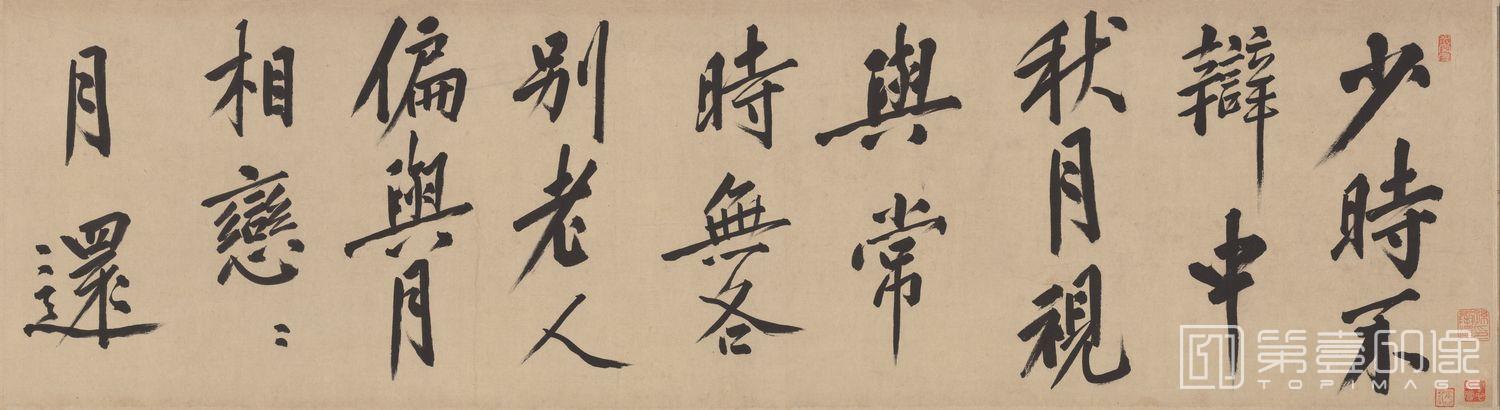 少時不
辯中
秋月視
與常
時無各
別老人
偏與月
相戀〻
月還
第壹印像
TOPIMAGE